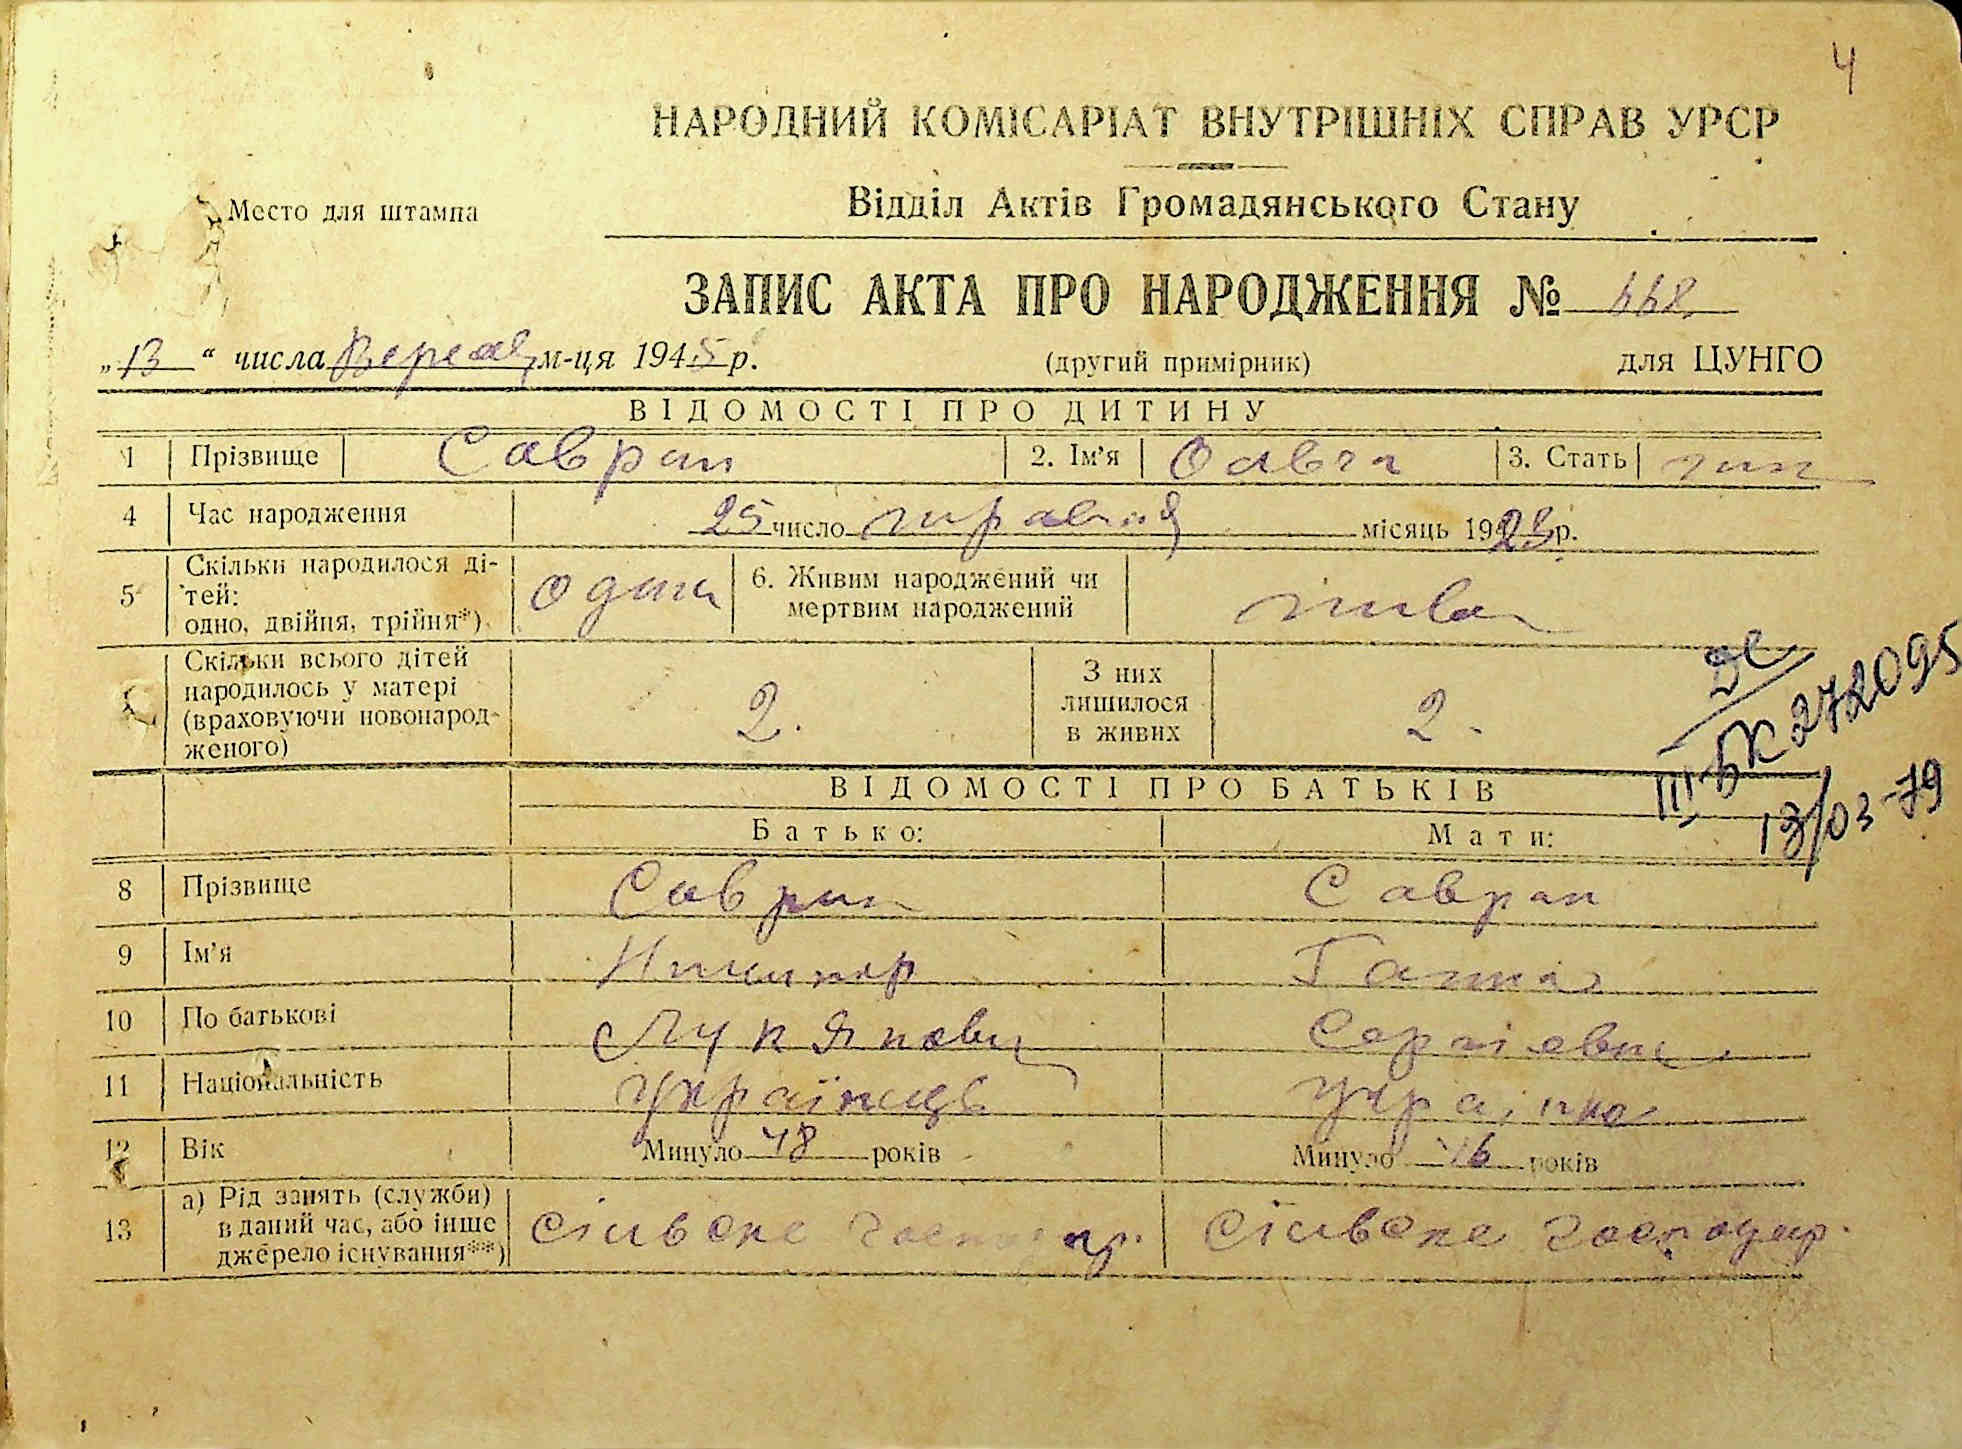 4
НАРОДНИЙ КОМІСАРІАТ ВНУТРІШНІХ СПРАВ УРСР
Место для штампа
Відділ Актів Громадянського Стану
ЗАПИС АКТА ПРО НАРОДЖЕННЯ №
„13“ числа Вересня м-ця 1945 р. (другий примірник) для ЦУНГО
ВІДОМОСТІ ПРО ДИТИНУ
1 Прізвище Савран 2. Ім'я 3. Стать жін
4 Час народження 25 число травня місяць 1923 р.
5 Скільки народилося ді-
тей:
одно, двійня, трійня*) 6. Живим народжений чи
мертвим народжений жива
Скільки всього дітей
народилось у матері
(враховуючи новонарод-
женого) 2. З них
лишилося
в живих 2.
ДС
III БК 272095
13/03-79
ВІДОМОСТІ ПРО БАТЬКІВ
Батько: Мати:
8 Прізвище Савран Савран
9 Ім'я Ничипор Ганна
10 По батькові Лук'янович Сергієвна
11 Національність Українець Українка
12 Вік Минуло 48 років Минуло 46 років
13 а) Рід занять (служби)
в даний час, або інше
джерело існування**) Сільське господар. Сільське господар.